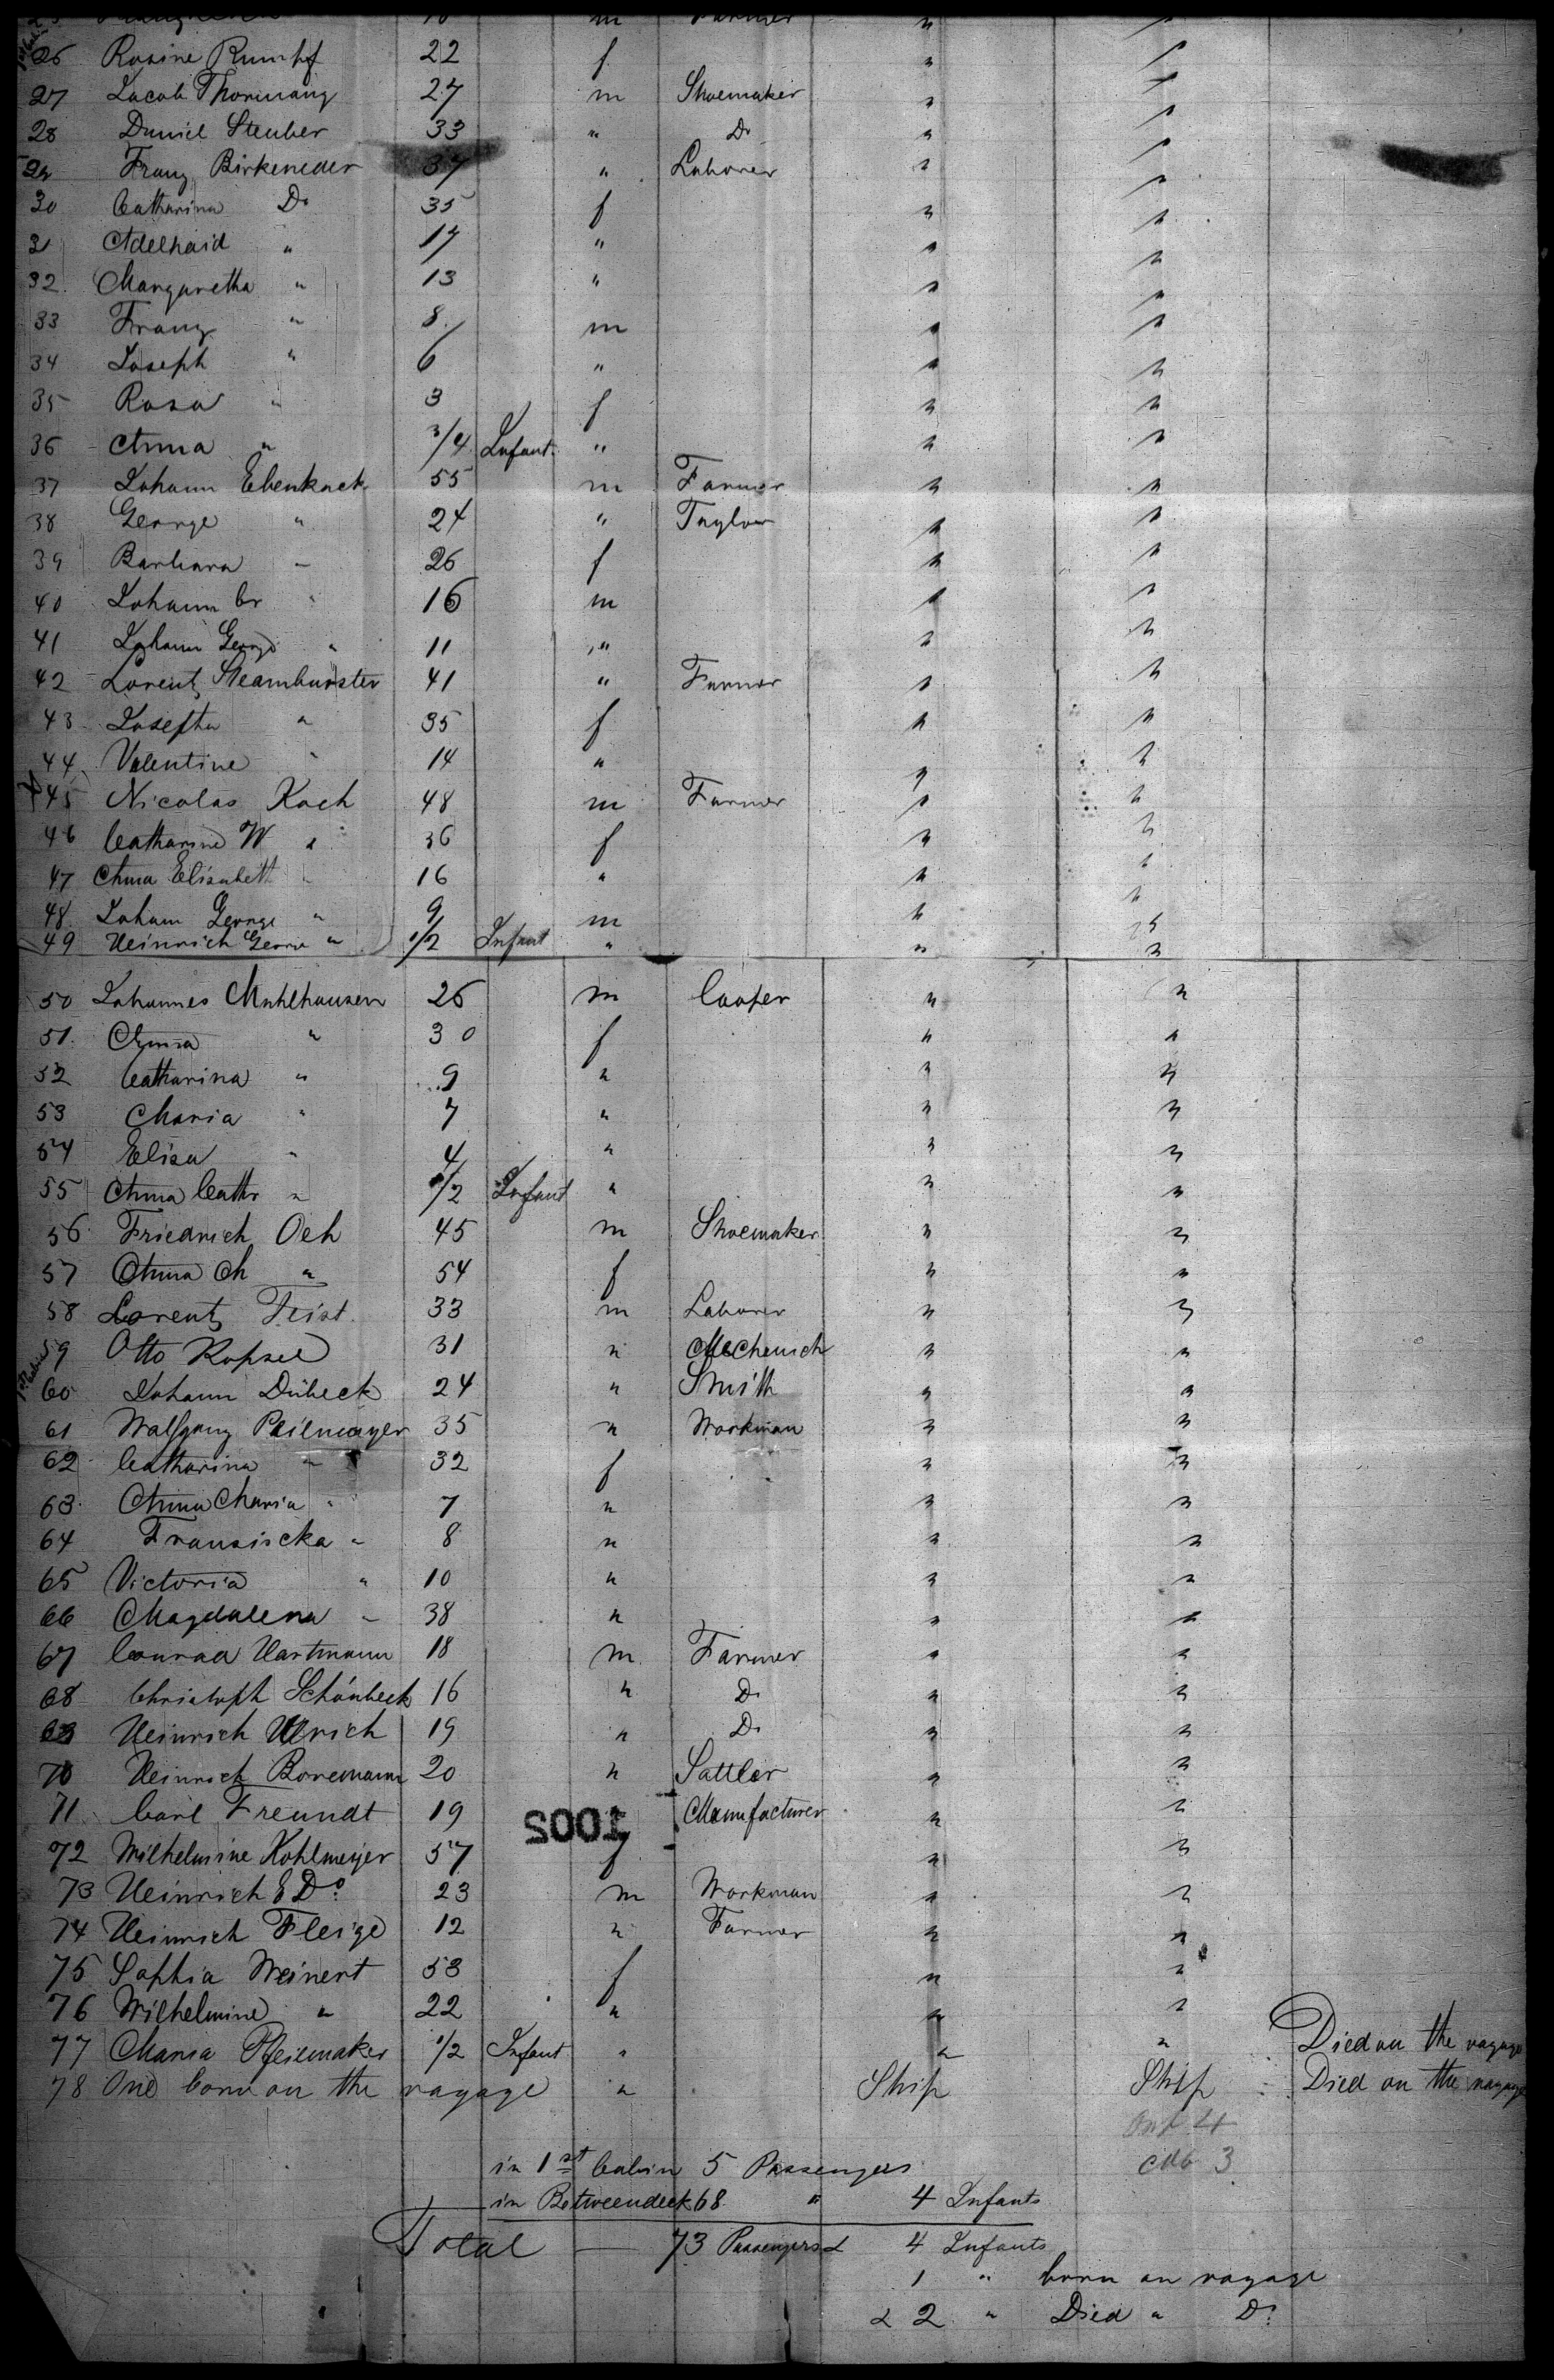 m Farmer "
26 Rosine Rumpf 22 f " "
27 Jacob Thormany 27 m Shoemaker " "
28 Daniel Steuber 33 " Do " "
29 Franz Birkeneder 37 " Laborer " "
30 Catharina Do 35 f " "
31 Adelhaid " 17 " " "
32 Margaretha " 13 " " "
33 Franz " 8 m " "
34 Joseph " 6 " " "
35 Rosa " 3 f " "
36 Anna " 3/4 Infant " " "
37 Johann Ebenhack 55 m Farmer " "
38 George " 24 " Taylor " "
39 Barbara " 26 f " "
40 Johann Cr " 16 m " "
41 Johann George " 11 " " "
42 Lorentz Steamburster 41 " Farmer " "
43 Josepha " 35 f " "
44 Valentine " 14 " " "
45 Nicolas Koch 48 m Farmer " "
46 Catharine W " 36 f " "
47 Anna Elisabeth " 16 " " "
48 Johann George " 9 m " "
49 Heinrich George " 1/2 Infant " " "
50 Johannes Muhlhausen 26 m Cooper " "
51 Anna " 30 f " "
52 Catharina " 9 " " "
53 Maria " 7 " " "
54 Elisa " 4 " " "
55 Anna Cathr " 1/2 Infant " " "
56 Friedrich Oeh 45 m Shoemaker " "
57 Anna M " 54 f " "
58 Lorentz Feist 33 m Laborer " "
59 Otto Kopsel 31 " Mechenich " "
60 Johann Dübeck 24 " Smith " "
61 Wolfgang Peilmayer 35 " Workman " "
62 Catharina " 32 f " "
63 Anna Maria " 7 " " "
64 Fransiscka " 8 " " "
65 Victoria " 10 " " "
66 Magdalena " 38 " " "
67 Conrad Hartmann 18 m Farmer " "
68 Christoph Schönbeck 16 " Do " "
69 Heinrich Ulrich 19 " Do " "
70 Heinrich Bornemann 20 " Sattler " "
71 Carl Freundt 19 Manufacturer " "
72 Wilhelmine Kohlmeyer 57 f " "
73 Heinrich E Do 23 m Workman " "
74 Heinrich Fleige 12 " Farmer " "
75 Sophia Weinert 53 f " "
76 Wilhelmine " 22 " " "
77 Maria Pfeilmaker 1/2 Infant " " " Died on the voyage
78 One born on the voyage " Ship Ship Died on the voyage
in 1st Cabin 5 Passengers
in Betweendeck 68 " 4 Infants
Total — 73 Passengers & 4 Infants
1 " born on voyage
& 2 " Died " Do